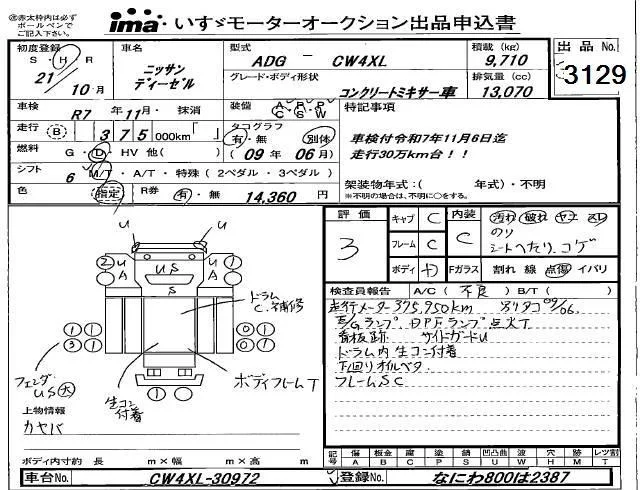 ㊟赤太枠内は必ず
ボールペンで
ご記入下さい。
ima・いすゞモーターオークション出品申込書
初度登録
S・H・R
21 年 10月
車名
ニッサン
ディーゼル
型式
ADG － CW4XL
グレード・ボディ形状
コンクリートミキサー車
積載(kg)
9,710
排気量(cc)
13,070
出品No.
3129
車検
R7 年11月・抹消
装備
A P P
C S W
走行
B 375000km「 」
タコグラフ
有・無 別体
(09年06月)
燃料
G・D・HV 他( )
シフト
6 M/T・A/T・特殊(2ペダル・3ペダル)
色
指定
R券
有・無 14,360 円
特記事項
車検付令和7年11月6日迄
走行30万km台！！
架装物年式:( 年式)・不明
※不明の場合は、不明に○をする。
評価
3
キャブ C
フレーム C
ボディ
内装
C
Fガラス
汚れ 破れ ヤニ スレ
のり
シートへたり、コゲ
割れ 線 点傷 イバリ
検査員報告 A/C(不良)B/T( )
走行メーター375,950km 別タコ09/06.
E/Gランプ、DPFランプ点火T
看板跡 サイドガードU
ドラム内 生コン付着
下回りオイルベタ
フレームSC
U U
2 U U 1
A US A
S
ドラム
C.補修
1 1 1 1
3 1 0 0
フェンダ
US大
生コン
付着
ボディフレームT
1
上物情報
カヤバ
ボディ内寸約 長 m×幅 m×高 m
記号
傷 板金 腐 塗 錆 凹凸曲 波 穴 跡 レツ割
A B C P S U W H M T
車台No. CW4XL-30972
登録No. なにわ800は2387